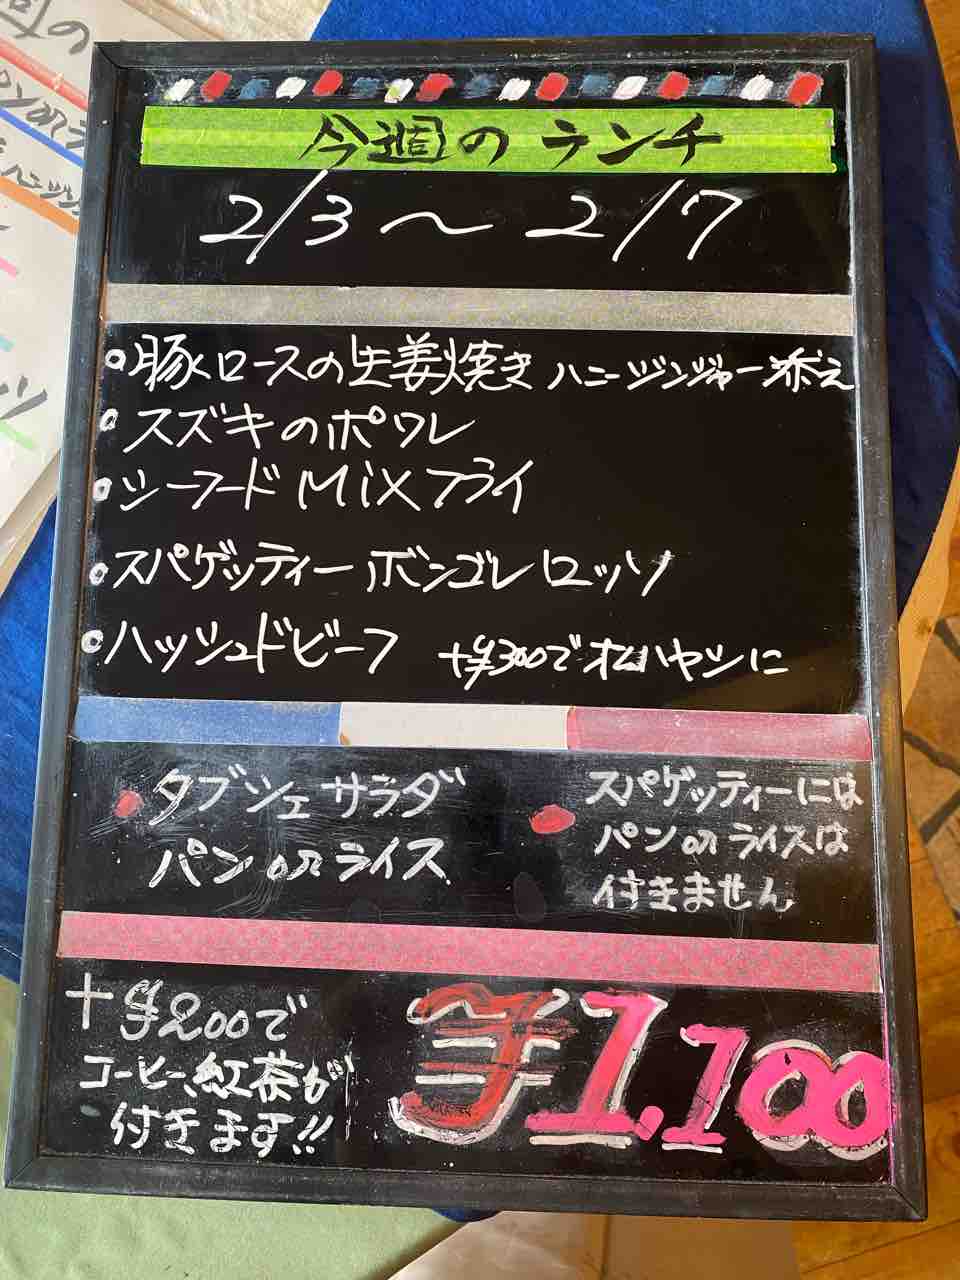 今週のランチ
2/3～2/7
豚ロースの生姜焼き ハニージンジャー添え
スズキのポワレ
シーフードMiXフライ
スパゲッティーボンゴレロッソ
ハッシュドビーフ +¥300でオムハヤシに
タブシェサラダ
パンorライス
スパゲッティーには
パンorライスは
付きません
+¥200で
コーヒー、紅茶が
付きます!!
¥1,100